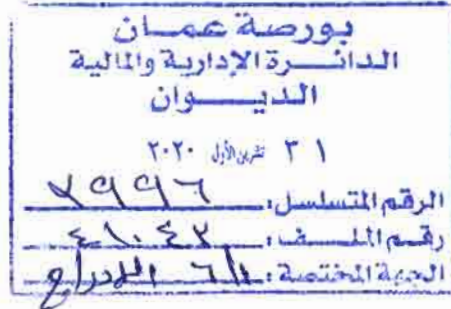 بورصة عمان
الدائرة الإدارية والمالية
الديوان
تشرين الأول ٢٠٢٠
الرقم المتسلسل:
رقم الملف:
الجهة المختصة: الإدراج